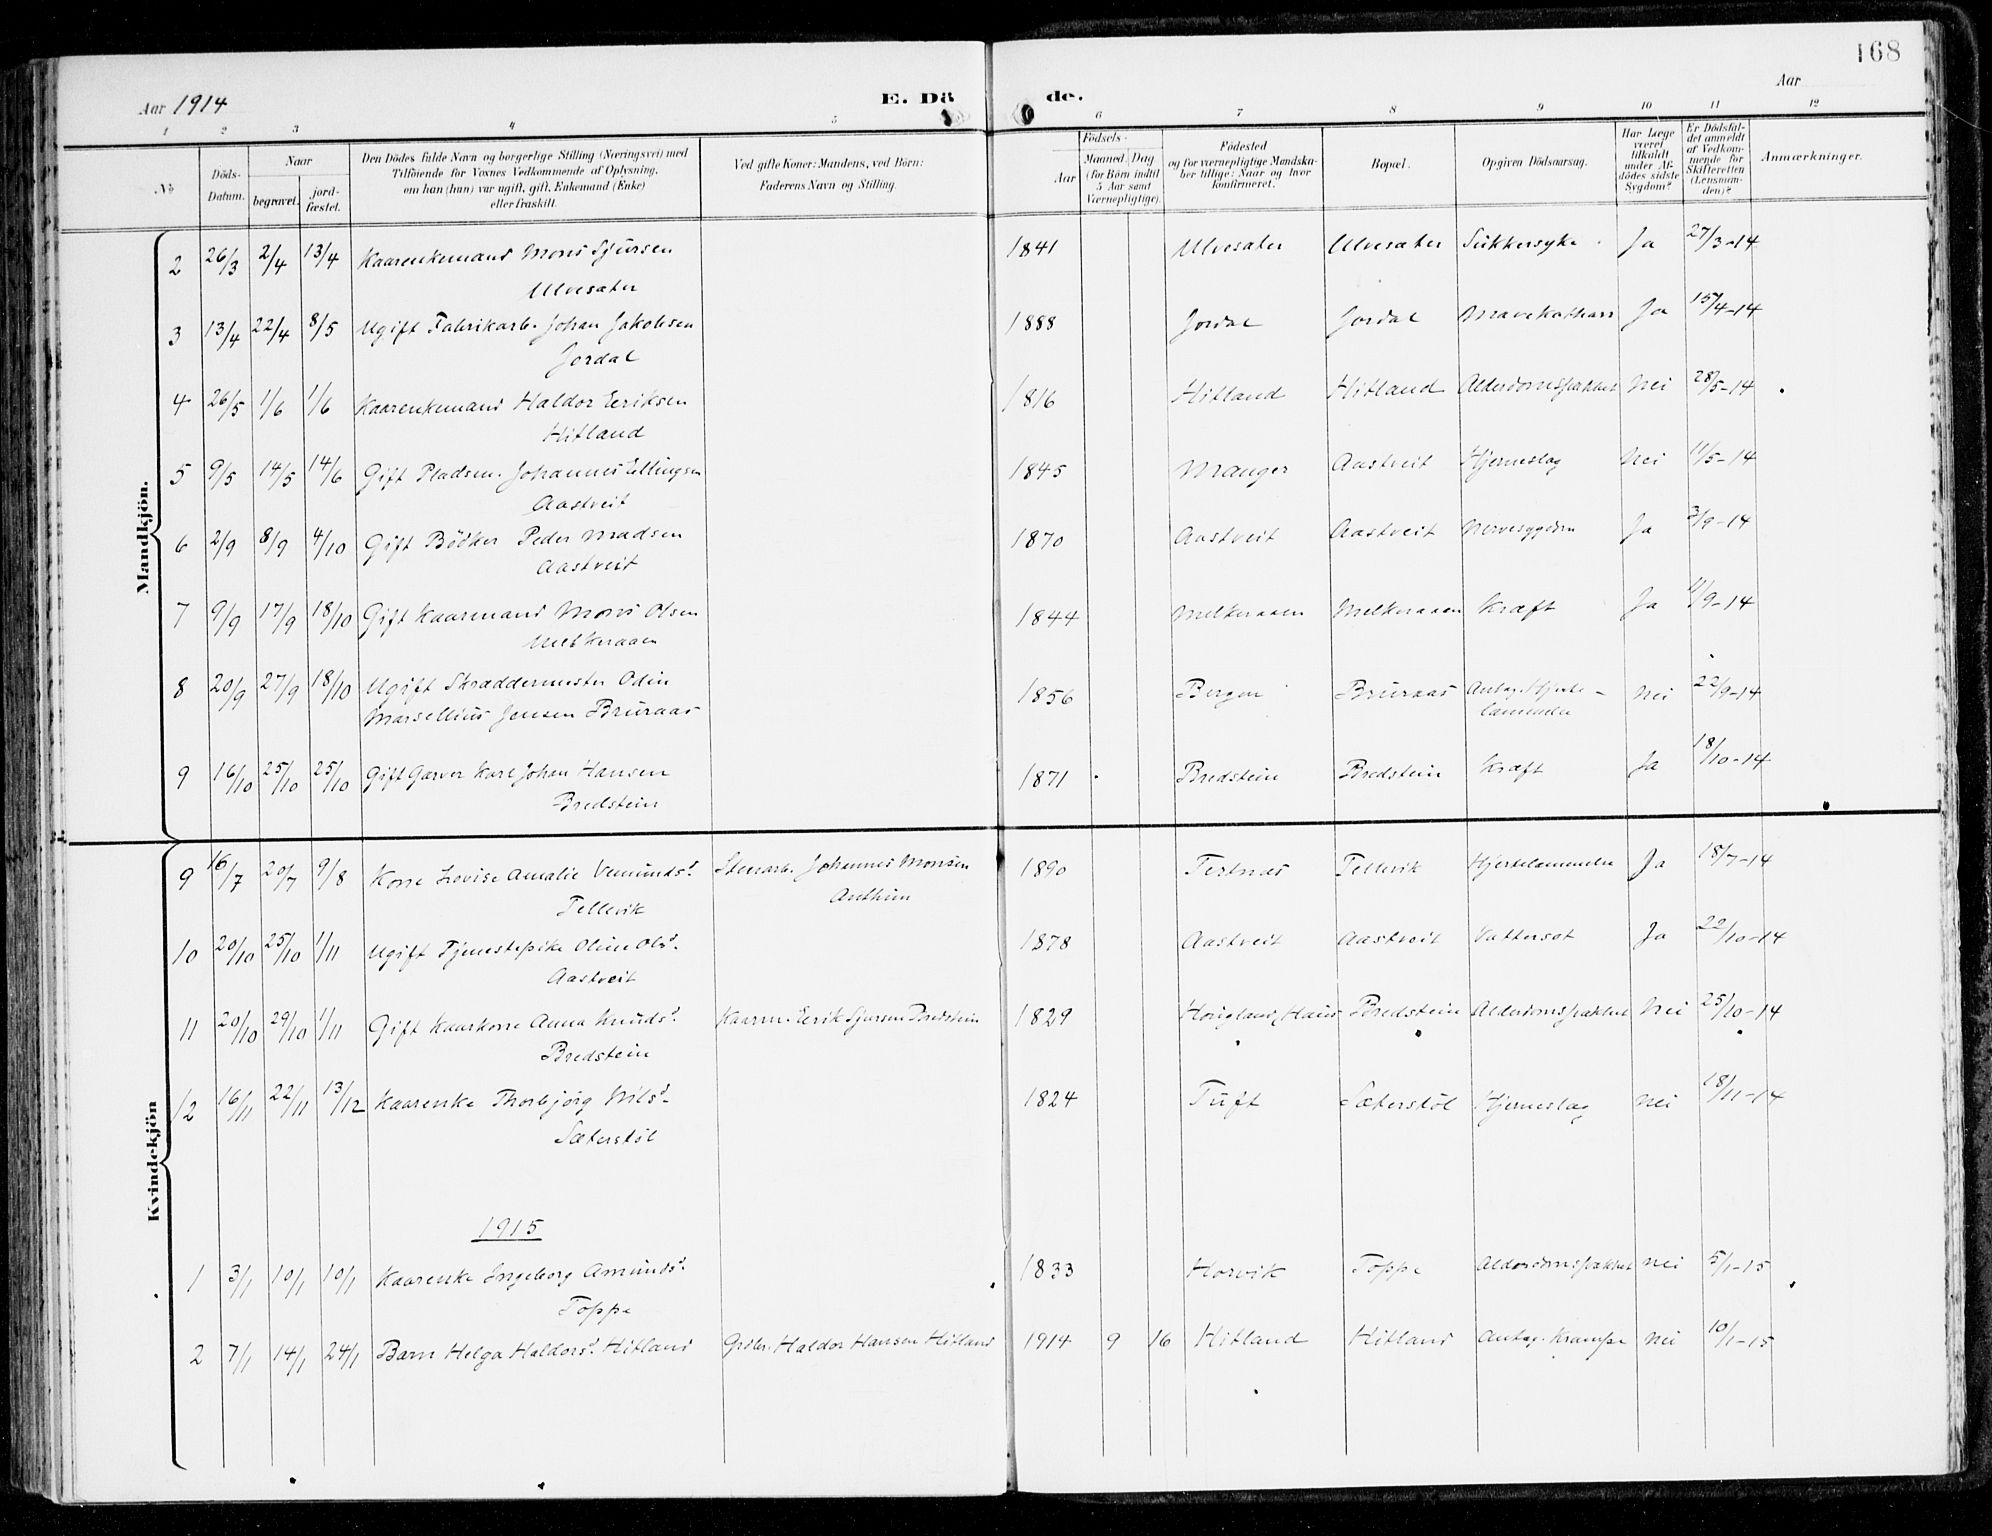 168
Aar 1914
E. Dö de.
Aar
1 2 3 4 5 6 7 8 9 10 11 12
No
Döds-Datum.
Naar
begravet.
jord-fæstet.
Den Dödes fulde Navn og borgerlige Stilling (Næringsvei) med
Tilföiende for Voxnes Vedkommende af Oplysning,
om han (hun) var ugift, gift, Enkemand (Enke)
eller fraskilt.
Ved gifte Koner: Mandens, ved Börn:
Faderens Navn og Stilling.
Födsels-
Aar
Maaned. Dag
(for Börn indtil
5 Aar samt
Værnepligtige).
Födested
og for værnepligtige Mandska-
ber tillige: Naar og hvor
konfirmeret.
Bopæl.
Opgiven Dödsaarsag.
Har Læge
været
tilkaldt
under Af-
dödes sidste
Sygdom?
Er Dödsfal-
det anmeldt
af Vedkom-
mende for
Skifteretten
(Lensman-
den)?
Anmærkninger.
Mandkjön.
2 26/3 2/4 13/4 Kaarenkemand Mons Sjursen 1841 Ulvesæter Ulvesæter Sukkersyke. Ja 27/3-14
Ulvesæter
3 13/4 22/4 8/5 Ugift Fabrikarb. Johan Jakobsen 1888 Jordal Jordal Mavekatharr Ja 15/4-14
Jordal
4 26/5 1/6 1/6 Kaarenkemand Haldor Eeriksen 1816 Hitland Hitland Alderdomssvakhet Nei 28/5-14
Hitland
5 9/5 14/5 14/6 Gift Pladsm. Johannes Ellingsen 1845 Manger Aastveit Hjerneslag Nei 11/5-14
Aastveit
6 2/9 8/9 4/10 Gift Bödker Peder Madsen 1870 Aastveit Aastveit Nervesygdom Ja 3/9-14
Aastveit
7 9/9 17/9 18/10 Gift Kaarmand Mons Olsen 1844 Melkeraaen Melkeraaen Kræft Ja 11/9-14
Melkeraaen
8 20/9 27/9 18/10 Ugift Skræddermester Odin 1856 Bergen Bruraas Antag. Hjerte- Nei 22/9-14
Marsellius Jensen Bruraas lammelse
9 16/10 25/10 25/10 Gift Garver Karl Johan Hansen 1871 Bredstein Bredstein Kræft Ja 18/10-14
Bredstein
Kvindekjön
9 16/7 20/7 9/8 Kone Lovise Amalie Vemundsd. Stenarb. Johannes Monsen 1890 Tertnæs Tellevik Hjertelammelse Ja 18/7-14
Tellevik
10 20/10 25/10 1/11 Ugift Tjenestepike Oline Olsd. 1878 Aastveit Aastveit Vattersot Ja 22/10-14
Aastveit
11 20/10 29/10 1/11 Gift Kaarkone Anna Knudsd. Kaarm. Eerik Sjursen Bredstein 1829 Hougland, Haus Bredstein Alderdomssvakhet Nei 25/10-14
Bredstein
12 16/11 22/11 13/12 Kaarenke Thorbjörg Nilsd. 1824 Tuft Sæterstöl Hjerneslag Nei 18/11-14
Sæterstöl
1915
1 3/1 10/1 10/1 Kaarenke Ingeborg Amundsd. 1833 Horvik Toppe Alderdomssvakhet Nei 5/1-15
Toppe
2 7/1 14/1 24/1 Barn Helga Haldorsd. Hitland Grdbr. Haldor Hansen Hitland 1914 9 16 Hitland Hitland Antag. Krampe Nei 10/1-15